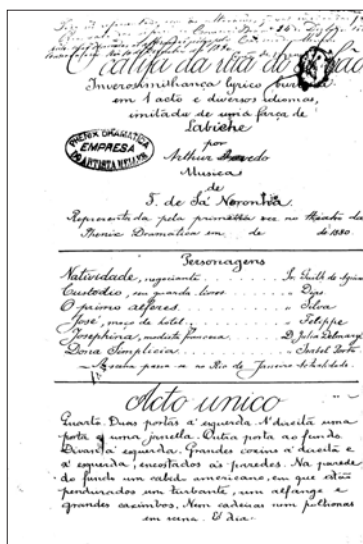 O califa da rua do Sabão
Inverosimilhança lyrica burlesca
em 1 acto e diversos idiomas,
imitada de uma farça de
Labiche
por
Arthur Azevedo
Musica
de
F. de Sá Noronha.
PHENIX DRAMATICA
EMPRESA
DO ARTISTA HELLER
Representada pela primeira vez no theatro da
Phenix Dramatica em de de 1880.
Personagens
Natividade, negociante Sr. Guilh. de Aguiar
Custodio, seu guarda livros " Dias
O primo alferes " Silva
José, moço do hotel " Felippe
Josephina, modista franceza D. Julia
Dona Simplicia " Isabel Porto
A scena passa-se no Rio de Janeiro. Actualidade.
Acto unico
Quarto. Duas portas á esquerda. Á direita uma
porta e uma janella. Outra porta ao fundo.
Divan á esquerda. Grandes coxins á direita e
á esquerda, encostados ás paredes. Na parede
do fundo um cabide americano, em que estão
pendurados um turbante, um alfange e
grandes cacimbos. Nem cadeiras nem poltronas
em scena. É dia.